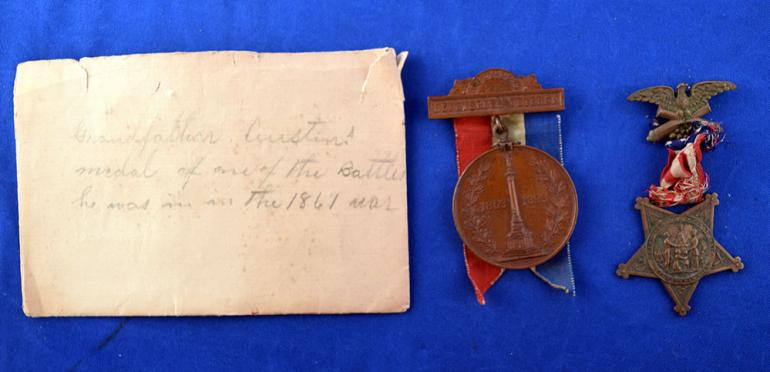 Grandfather Austin's
medal of one of the Battles
he was in in the 1861 war
1863